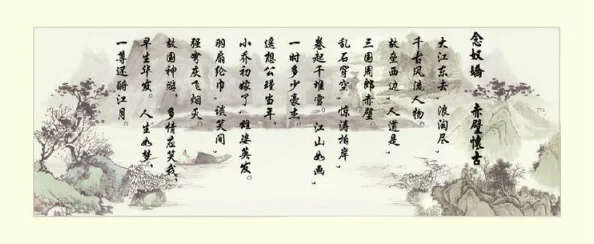 念奴娇 赤壁怀古
大江东去 浪淘尽,
千古风流人物。
故垒西边,人道是,
三国周郎赤壁。
乱石穿空,惊涛拍岸,
卷起千堆雪。江山如画,
一时多少豪杰。
遥想公瑾当年,
小乔初嫁了,雄姿英发。
羽扇纶巾,谈笑间,
强虏灰飞烟灭。
故国神游,多情应笑我,
早生华发。人生如梦,
一尊还酹江月。